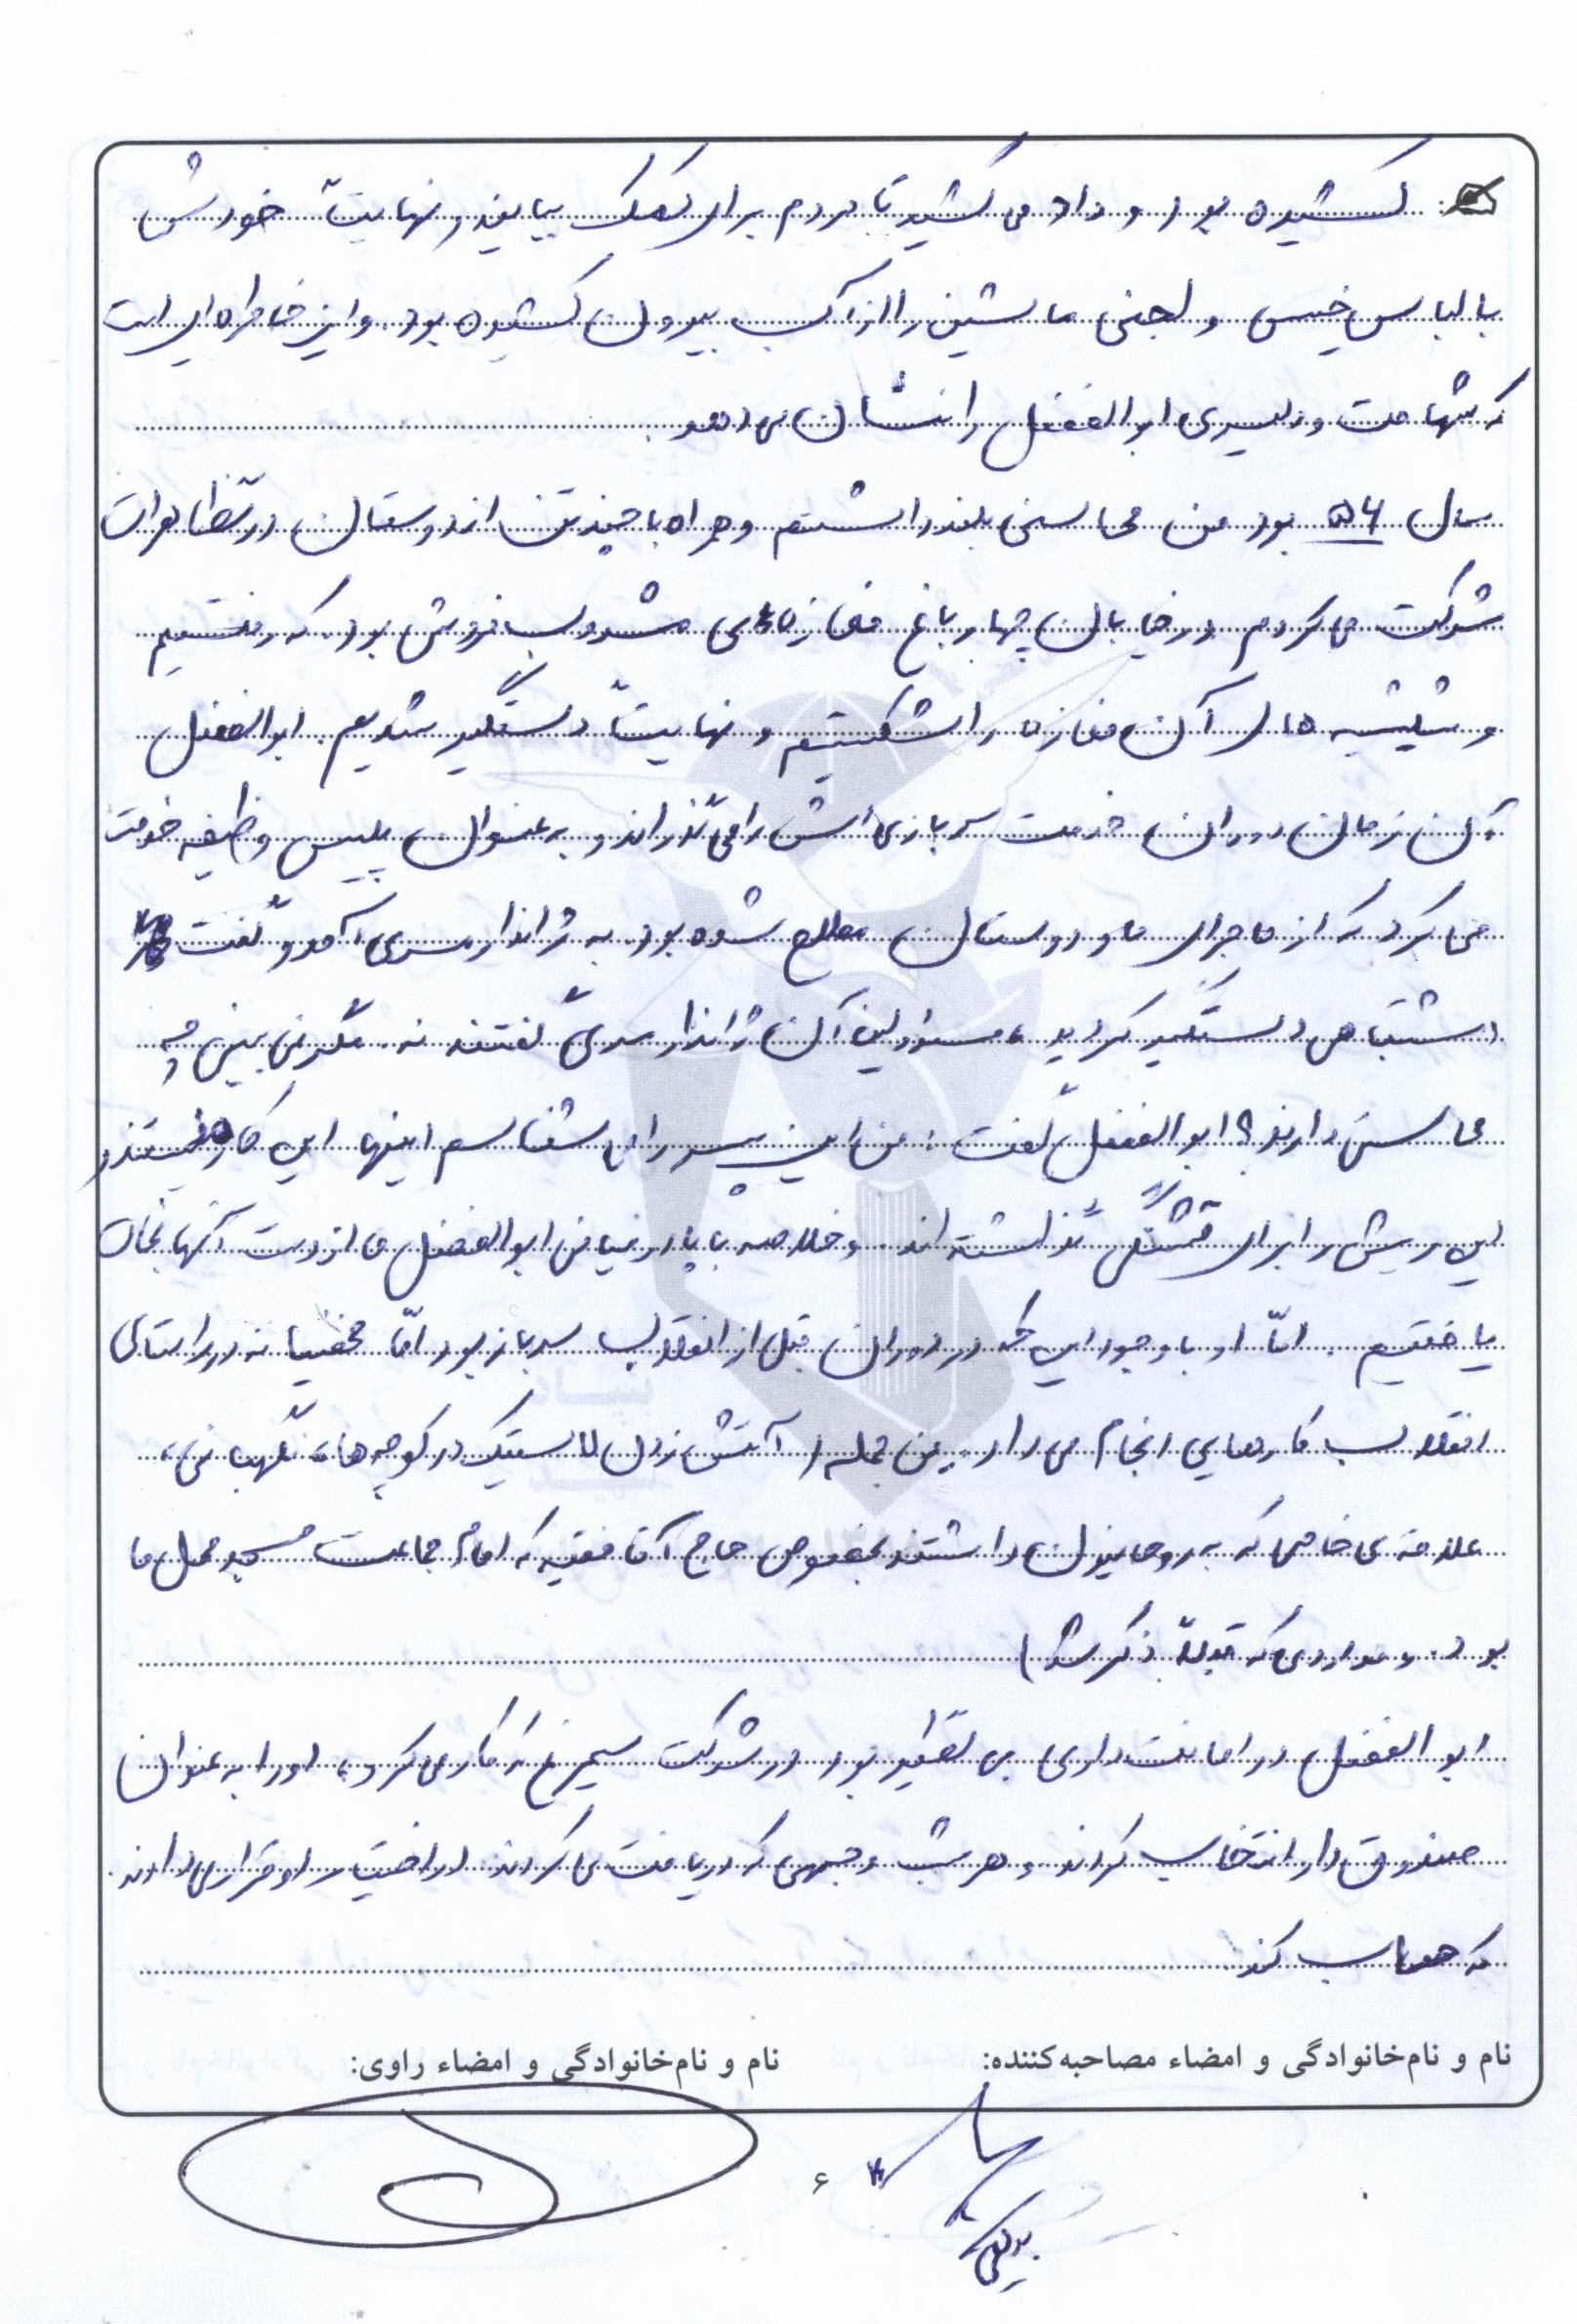 کشیده بود و داد می کشید تا مردم برای کمک بیایند و نهایتاً خودش
با لباس خیس و لجنی ماشین را از آب بیرون کشیده بود. و این خاطره ای است
که شهامت و دلیری ابوالفضل را نشان می دهد.
سال ۵۶ بود من محاسنی بلند داشتم و همراه با چند تن از دوستان در تظاهرات
شرکت می کردم در خیابان چهار باغ مغازه ی مشروب فروشی بود. که رفتیم
و شیشه های آن مغازه را شکستیم و نهایتاً دستگیر شدیم. ابوالفضل
آن زمان دوران خدمت سربازی اش را می گذراند و به عنوان پلیس وظیفه خدمت
می کرد که از ماجرای ما و دوستان مطلع شده بود. به ژاندارمری آمد و گفت
اشتباهی دستگیر کردید، مسئولین آن ژاندارمری گفتند نه. مگر نمی بینی چه
محاسنی دارند؟ ابوالفضل گفت: من این پسر را می شناسم اینها این کاره نیستند و
این ریش را برای قشنگی گذاشته اند. و خلاصه با پادرمیانی ابوالفضل ما از دست آنها نجات
یافتیم. امّا او با وجود این که در دوران قبل از انقلاب سرباز بود امّا مخفیانه در راستای
انقلاب کارهایی انجام می داد. من جمله (آتش زدن لاستیک در کوچه ها، نگهبانی،
علاقه ی خاصی که به روحانیون داشتند بخصوص حاج آقا فقیه که امام جماعت مسجد محل ما
بود. و مواردی که قبلاً ذکر شد)
ابوالفضل در امانت داری بی نظیر بود در شرکت سیمرغ که کار می کرد، او را به عنوان
صندوق دار انتخاب کردند و هر شب وجهی که دریافت می کردند در اختیار او قرار می دادند.
که حساب کند.
نام و نام‌خانوادگی و امضاء مصاحبه‌کننده: نام و نام‌خانوادگی و امضاء راوی:
۶